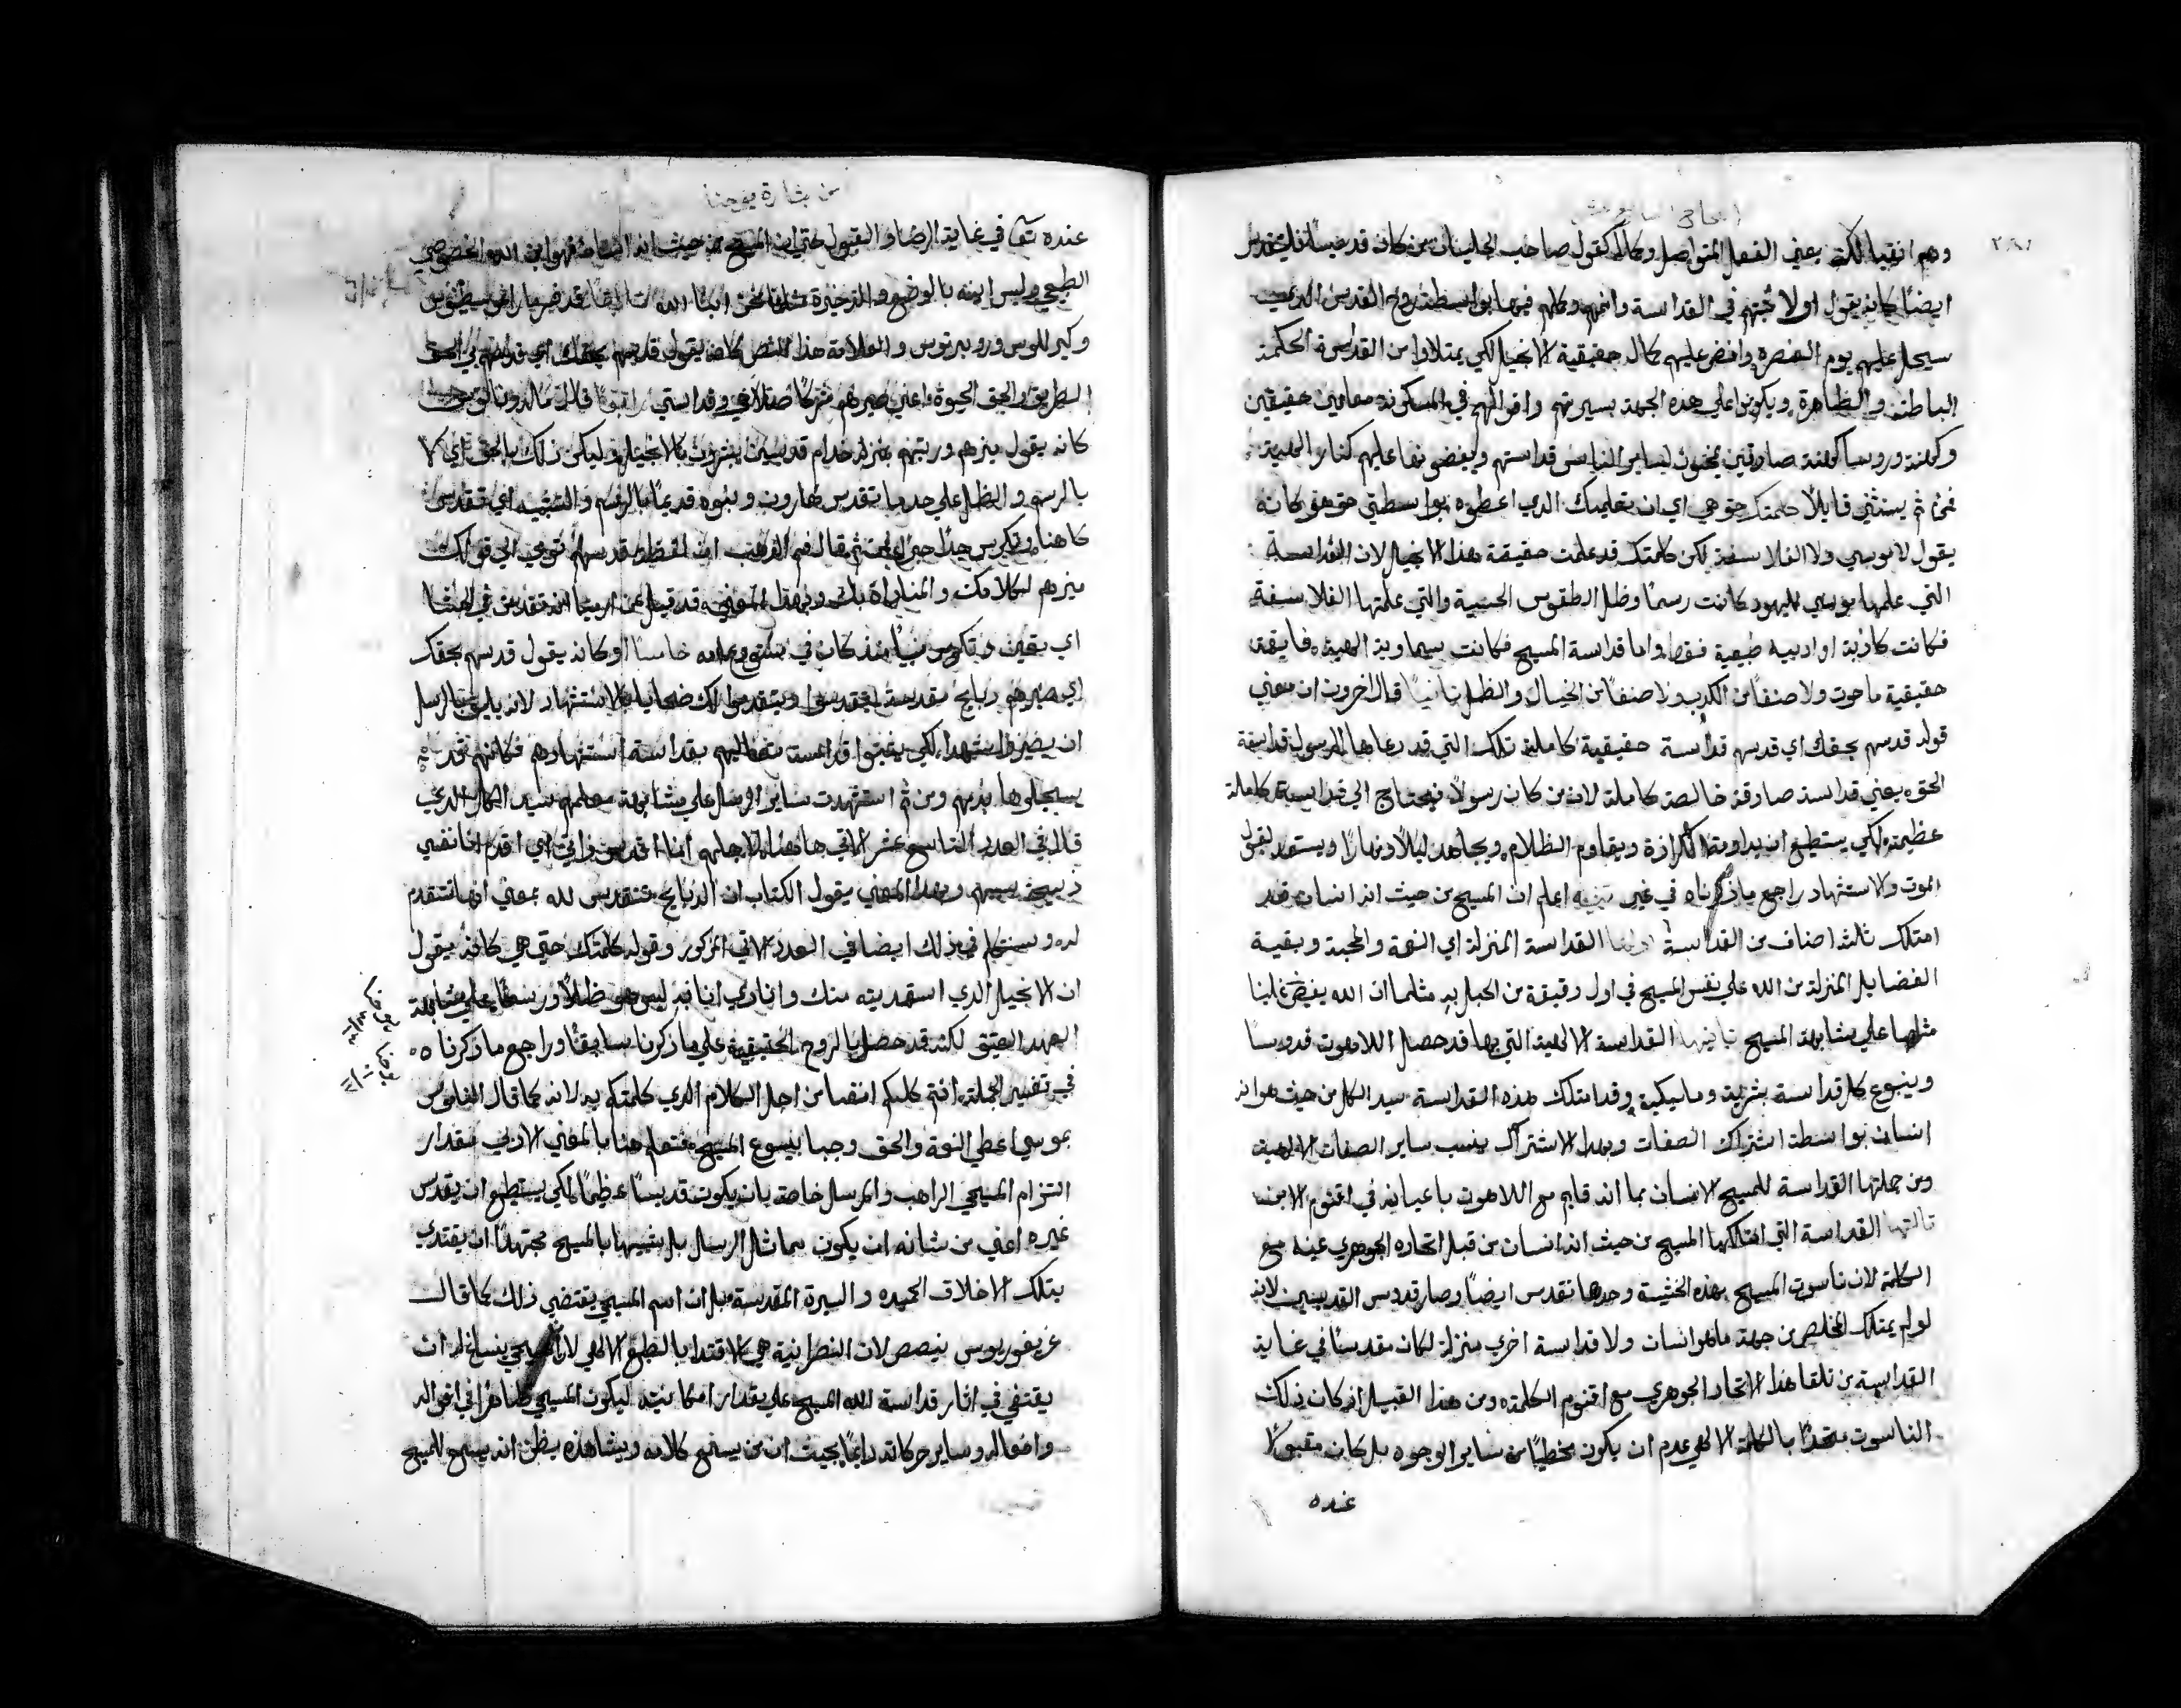 ٢٨١
وهم انقيا لكنه يعني الفعل المتواصل وكاله كقول صاحب الجليان من كان قديسًا فليتقدس
ايضًا كانه يقول اولا ثبتهم في القداسة وانمهم وكلهم فيها بواسطة روح القدس الذي
سيحل عليهم يوم العنصرة وافض عليهم كمال حقيقية الانجيل لكي يمتلاوا من القداسة الحكمة
الباطنة والظاهرة ويكونوا علي هذه الجهة بسيرتهم واقوالهم في المسكونة معلمين حقيقين
وكهنة وروسا كهنة صادقين يمنحون لساير الناس قداستهم
ثم يستثني قايلًا كلمتك حق هي اي ان تعليمك الذي اعطوه بواسطتي حق هو كانه
يقول لا موسي ولا الفلاسفة لكن كلمتك قد علمت حقيقة هذا الانجيل لان القداسة
التي علمها موسي لليهود كانت رسمًا وظل الطقوس الحسية والتي علمتها الفلاسفة
فكانت كاذبة او ادبيه طبيعية فقط واما قداسة المسيح فكانت سماوية الهية فايقة
حقيقية ما حوت ولا صنفًا من الكذب ولا صنفًا من الخيال والظل ثانيًا قال اخرون ان معني
قوله قدسهم بحقك اي قدسهم قداسة حقيقية كاملة تلك التي قد دعاها الرسول قداسة
الحق يعني قداسة صادقة خالصة كاملة لان من كان رسولًا فيحتاج الي قداسة كاملة
عظيمة لكي يستطيع ان يداوم الكرازة ويقاوم الظلام ويجاهد ليلًا ونهارًا ويستعد لقبول
الموت والاستشهاد راجع ما ذكرناه في غير تنبيه اعلم ان المسيح من حيث انه انسان قد
امتلك ثلثة اصناف من القداسة اولها القداسة المنزلة اي النعمة والمحبة وبقية
الفضايل المنزلة من الله علي نفس المسيح في اول دقيقة من الحبل به مثلما ان الله يفيض علينا
مثلها علي مشابهة المسيح ثانيها القداسة الالهية التي بها قد حصل اللاهوت قدوسًا
وينبوع كل قداسة بشرية وملايكية وقد امتلك هذه القداسة سيد الكل من حيث هو انه
انسان بواسطة اشتراك الصفات وبهذا الاشتراك ينسب ساير الصفات الالهية
ومن جملتها القداسة للمسيح الانسان بما انه قايم مع اللاهوت باعيانه في اقنوم الابن
ثالثها القداسة التي امتلكها المسيح من حيث انه انسان من قبل اتحاده الجوهري عينه مع
الكلمة لان ناسوت المسيح بهذه الحثيية وحدها تقدس ايضًا وصار قدوس القديسين لانه
لو لم يمتلك المخلص من جهة ما هو انسان ولا قداسة اخري منزلة لكان مقدسًا في غاية
القداسة من تلقا هذا الاتحاد الجوهري مع اقنوم الكلمة ومن هذا القبيل اذ كان ذلك
الناسوت متحدًا بالكلمة الالهي عدم ان يكون مخطيًا من ساير الوجوه بل كان مقبولًا
عنده
من بشارة يوحنا
عنده تعا في غاية الرضا والقبول حتي ان المسيح من حيث انه انسان فهو ابن الله الخصوصي
الطبيعي وليس ابنه بالوضع والذخيرة مثلنا نحن ابنا الله
وكيرللوس وروبيرتوس والعلامة هذا النص كانه يقول قدسهم بحقك اي قدسهم بي الحق
الطريق والحق الحيوة اعني صيرهم شركا
كانه يقول ميزهم ورتبهم بمنزلة خدام قديسين يبشرون بالانجيل وليكن ذلك بالحق اي لا
بالرسم والظل علي حد ما تقدس هارون وبنوه قديمًا بالرسم والتشبيه اي تقدس
ميزهم لكلامك والمناداة به وبهذا المعني قد قيل عن ارميا انه تقدس في الحشا
اي تعين وتكرس نبيًا منذ كان في خامسًا او كانه يقول قدسهم بحقك
اي صيرهم ذبايح مقدسة ويتقدموا لك ضحايا بالاستشهاد لانه يليق بالرسل
ان يصيروا شهدا لكي يثبتوا قداسة تعاليمهم بقداسة استشهادهم فكانهم
يسجلوها بدمهم ومن ثم استشهدت ساير الرسل علي مشابهة معلمهم سيد الكل الذي
قال في العدد التاسع عشر الاتي هاهنا لاجلهم انا اقدس ذاتي اي اقدم انا نفسي
ذبيحة بسببهم وبهذا المعني يقول الكتاب ان الذبايح تتقدس لله بمعني انها تتقدم
له وسنتكلم في ذلك ايضا في العدد الاتي المذكور وقوله كلمتك حق هي كانه يقول
ان الانجيل الذي استمديته منك وانادي انا به ليس هو ظلًا ورسمًا علي مشابهة
العهد العتيق لكنه قد حصل بالروح الحقيقية علي ما ذكرنا سابقًا وراجع ما ذكرناه
في تفسير الجملة انتم كلكم انقيا من اجل الكلام الذي كلمتكم به لانه كما قال الناموس
بموسي اعطي النعمة والحق وجبا بيسوع المسيح فتعلم هنا بالمعني الادبي مقدار
التزام المسيحي الراهب والمرسل خاصة بان يكون قديسًا عظيمًا لكي يستطيع ان يقدس
غيره اعني من شانه ان يكون مماثل الرسل بل شبيها بالمسيح مجتهدًا ان يقتدي
بتلك الاخلاق الحميده والسيرة المقدسة بل ان اسم المسيحي يقتضي ذلك كما قال
غريغوريوس نيصص لان النصرانية هي الاقتدا بالطبع الالهي
يقتفي في اثار قداسة الله المسيح علي مقدار امكانيته ليكون المسيحي ظاهرًا في اقواله
وافعاله وساير حركاته دايمًا بحيث ان من يسمع كلامه ويشاهده يظن انه يسمع المسيح
يوحنا
يوحنا